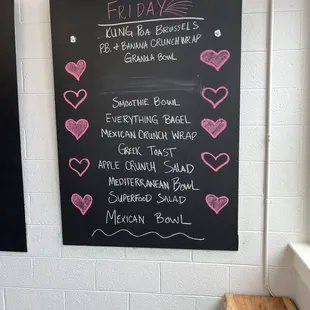 FRIDAY
KUNG POA BRUSSELS
P.B. & BANANA CRUNCH WRAP
GRANOLA BOWL
SMOOTHIE BOWL
EVERYTHING BAGEL
MEXICAN CRUNCH WRAP
GREEK TOAST
APPLE CRUNCH SALAD
MEDITERRANEAN BOWL
SUPERFOOD SALAD
MEXICAN BOWL